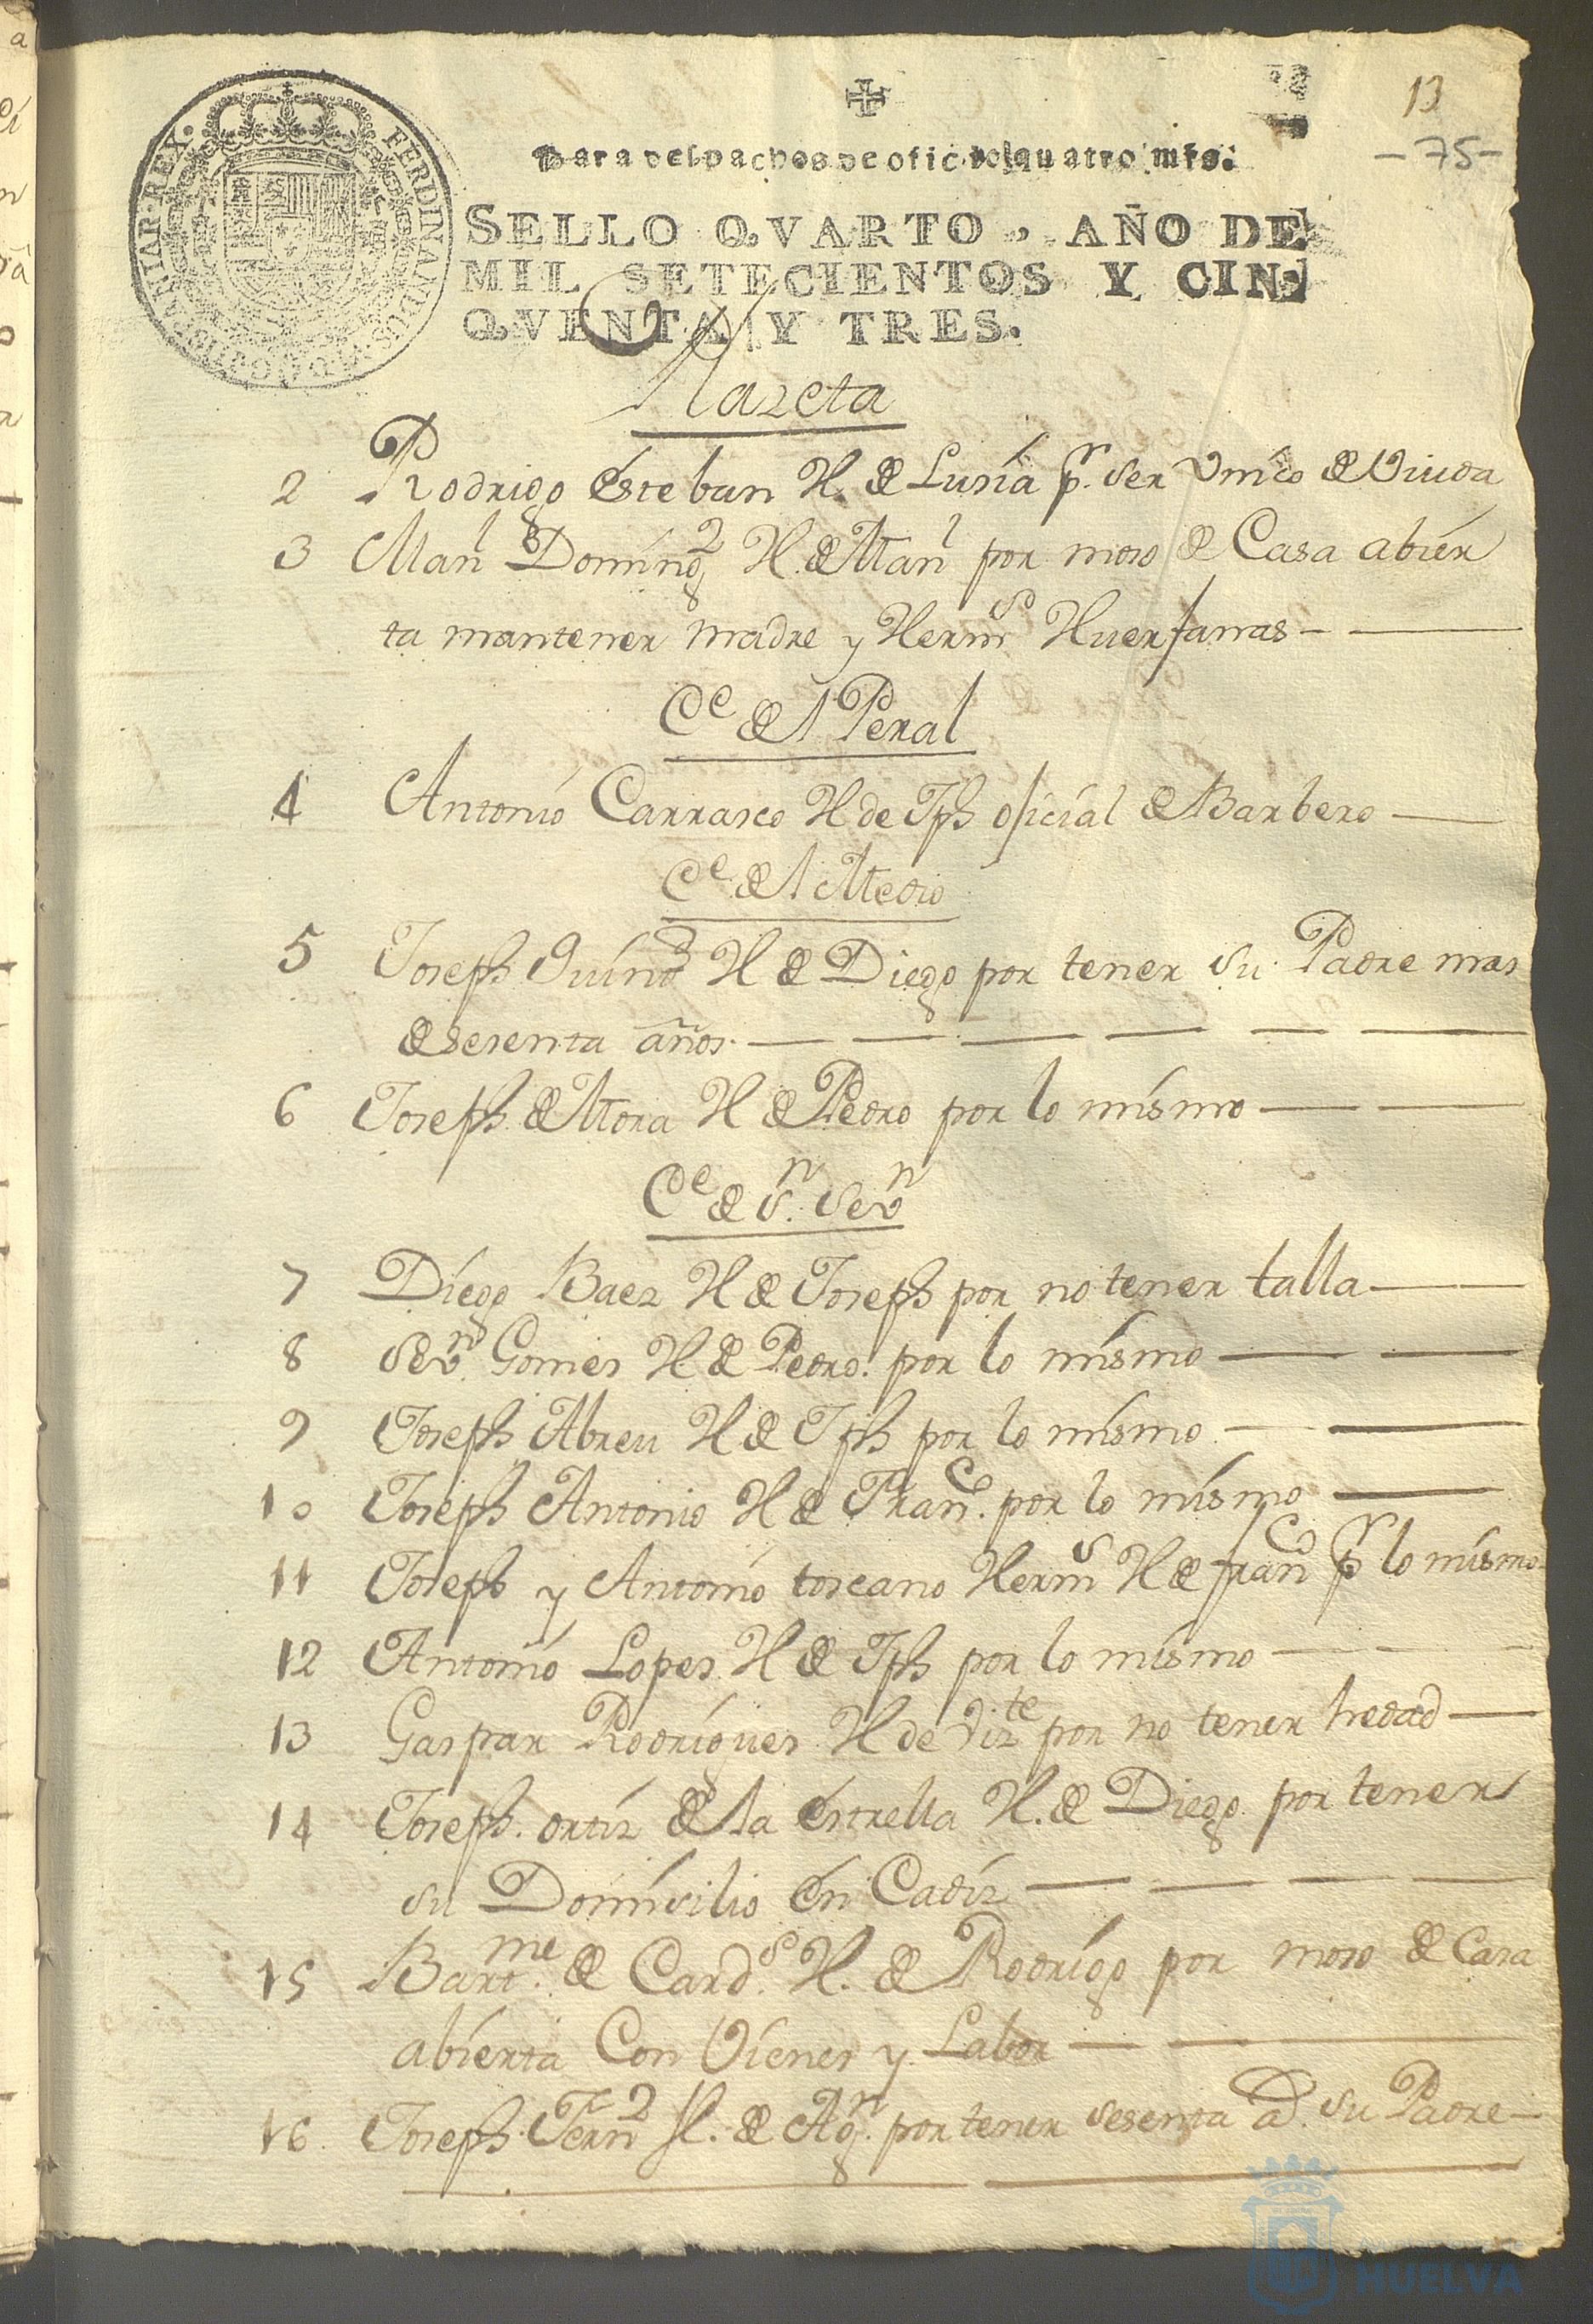 13
-75-
Para despachos de oficio quatro mrs.
SELLO QVARTO, AÑO DE
MIL SETECIENTOS Y CIN-
QVENTA Y TRES.
FERDINANDUS
HISPANIAR. REX.
Nazeta
2 Rodrigo esteban H. de Lusia pr. ser Vnico de Viuda
3 Manl Domingz H. de Manl por moso de Casa abier
ta mantener madre y Hermas Huerfanas
Ce del Peral
4 Antonio Carrasco H de Jph oficial de Barbero
Ce del Medio
5 Joseph H de Diego por tener su Padre mas
de sesenta años
6 Joseph de Mora H de Pedro por lo mismo
Ce de Sn. Sevn
7 Diego Baez H de Joseph por no tener talla
8 Sevn. Gomes H de Pedro. por lo mismo
9 Joseph Abreu H de Jph por lo mismo
10 Joseph Antonio H de Franco. por lo mismo
11 Joseph y Antonio toscano Herms H de franco pr lo mismo
12 Antonio Lopes H de Jph por lo mismo
13 Gaspar Rodrigues H de Vizte por no tener hedad
14 Joseph. ortiz de la estrella H. de Diego por tener
su Domisilio en Cadiz
15 Bartme. de Cardso. H. de Rodrigo por moso de Casa
abierta Con Vienes y Labor
16 Joseph Fernz H. de Agn. por tener sesenta as. su Padre
HUELVA